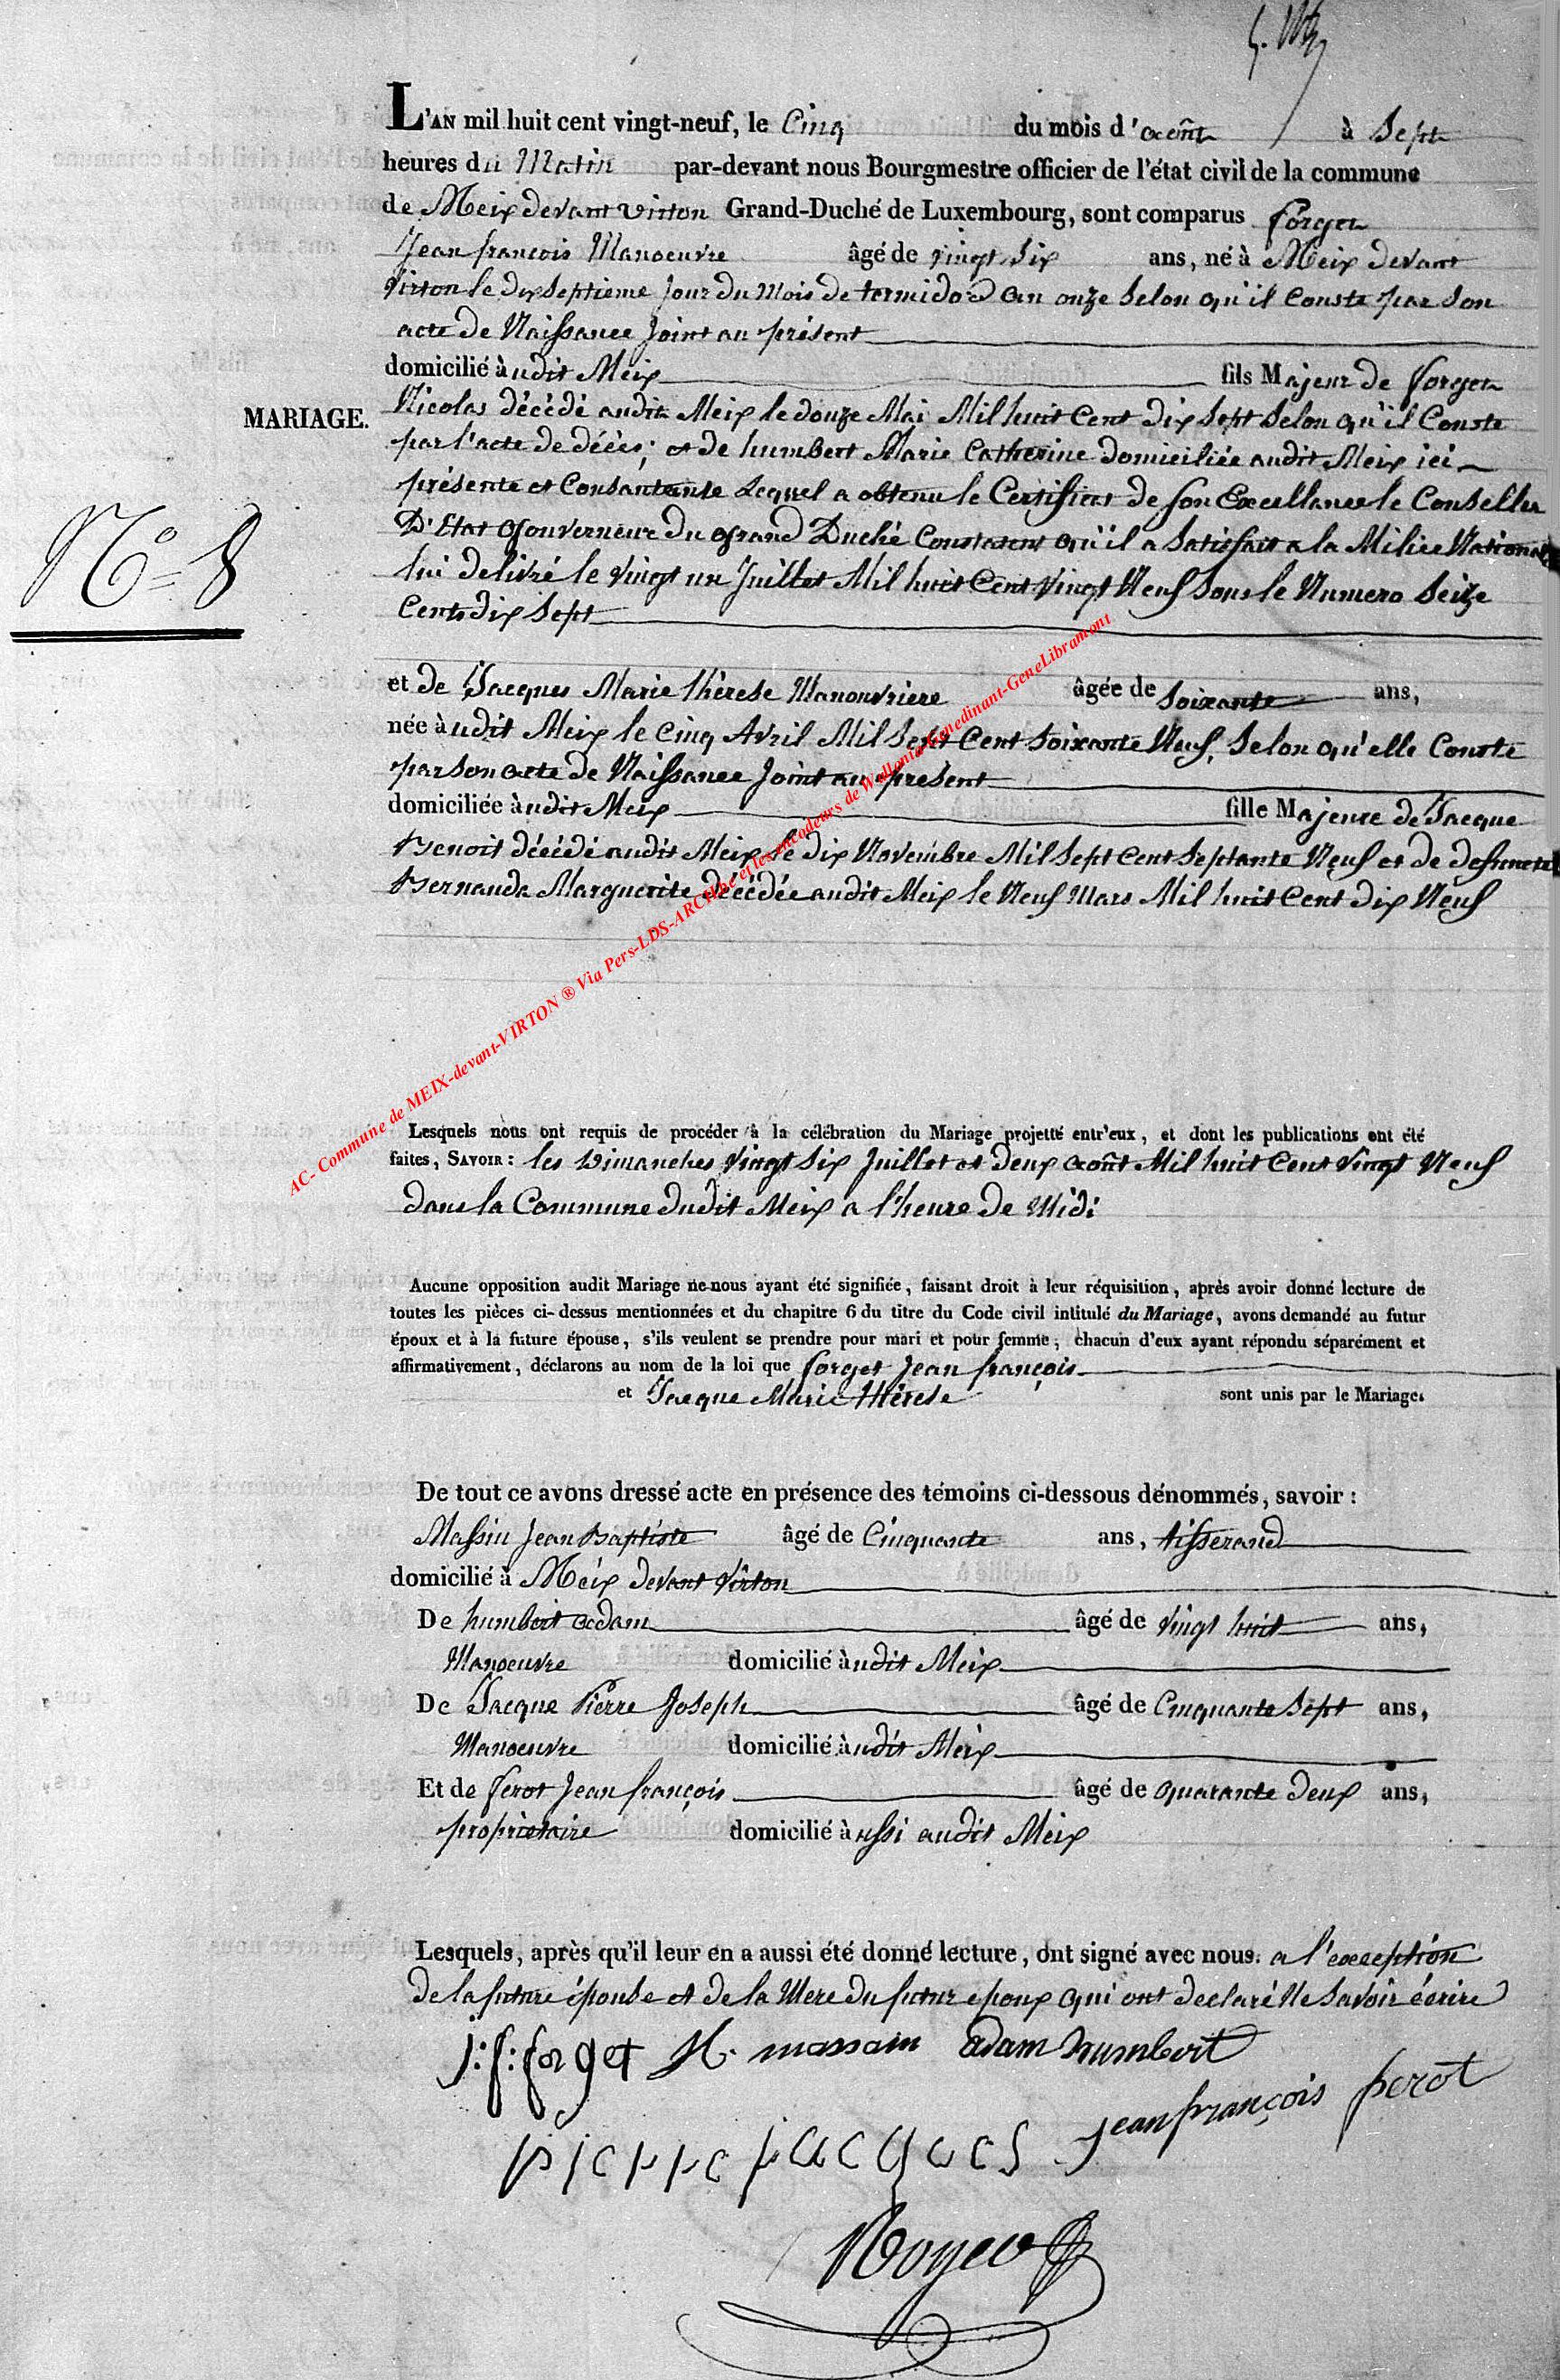 L'AN mil huit cent vingt-neuf, le Cinq du mois d'août à Sept
heures du Matin par-devant nous Bourgmestre officier de l'état civil de la commune
de Meix devant virton Grand-Duché de Luxembourg, sont comparus forget
Jean françois Manoeuvre âgé de vingt Six ans, né à Meix devant
Virton le dix Septieme Jour du Mois de termidor an onze Selon qu'il Conste par Son
acte de Naissance Joint au présent
domicilié audit Meix fils Majeur de forget
MARIAGE.
Nicolas décédé audit Meix le douze Mai Mil huit Cent dix Sept Selon qu'il Conste
par l'acte de décès; et de humbert Marie Catherine domiciliée audit Meix ici
présente et Consantante Lequel a obtenu le Certificat de son Excellance le Conseller
D'Etat Gouverneur du Grand Duché Constatent qu'il a Satisfait a la Milice Nationale
N° 8
lui delivré le vingt un Juillet Mil huit Cent Vingt Neuf Sous le Numero Seize
Cent dix Sept
et de Jacques Marie thérese Manouvriere âgée de Soixante ans,
née audit Meix le Cinq Avril Mil Sept Cent Soixante Neuf, Selon qu'elle Conste
par son acte de Naissance Joint au présent
domiciliée audit Meix fille Majeure de Jacque
Benoit décédé audit Meix le dix Novembre Mil Sept Cent Septante Neuf et de deffuncte
Bernauda Marguerite décédée audit Meix le Neuf Mars Mil huit Cent dix Neuf
AC- Commune de MEIX-devant-VIRTON ® Via Pers-LDS-ARCHbe et les encodeurs de Wallonia-Genedinant-GeneLibramont
Lesquels nous ont requis de procéder à la célébration du Mariage projetté entr'eux, et dont les publications ont été
faites, SAVOIR : les Dimanches Vingt Six Juillet et deux août Mil huit Cent Vingt Neuf
dans la Commune dudit Meix a l'heure de Midi
Aucune opposition audit Mariage ne nous ayant été signifiée, faisant droit à leur réquisition, après avoir donné lecture de
toutes les pièces ci-dessus mentionnées et du chapitre 6 du titre du Code civil intitulé du Mariage, avons demandé au futur
époux et à la future épouse, s'ils veulent se prendre pour mari et pour femme; chacun d'eux ayant répondu séparément et
affirmativement, déclarons au nom de la loi que forget Jean françois
et Jacque Marie thérese sont unis par le Mariage.
De tout ce avons dressé acte en présence des témoins ci-dessous dénommés, savoir :
Massin Jean Baptiste âgé de Cinquante ans, tisserand
domicilié à Meix devant Virton
De humbert adam âgé de vingt huit ans,
Manoeuvre domicilié audit Meix
De Jacque Pierre Joseph âgé de Cinquante Sept ans,
Manoeuvre domicilié audit Meix
Et de Perot Jean françois âgé de quarante deux ans,
proprietaire domicilié aussi audit Meix
Lesquels, après qu'il leur en a aussi été donné lecture, ont signé avec nous. a l'exception
de la future épouse et de la Mere du futur epoux qui ont declaré Ne Savoir écrire
j:f: forget massain adam humbert
jean françois perot
pierre jacques